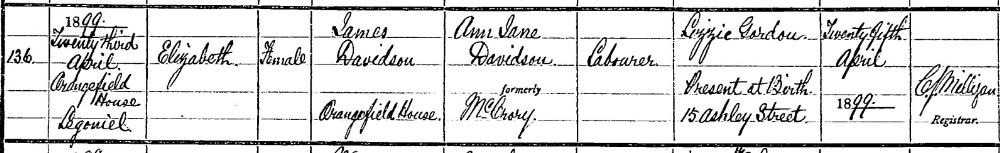 136.
1899.
Twenty third
April.
Orangefield
House
Legoniel.
Elizabeth.
Female
James
Davidson
Orangefield House.
Ann Jane
Davidson
formerly
McCrory.
Labourer.
Lizzie Gordon.
Present at Birth.
15 Ashley Street.
Twenty fifth
April
1899.
Milligan
Registrar.